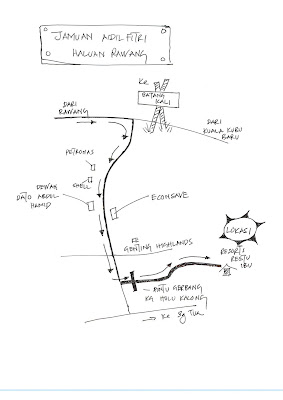 JAMUAN AIDILFITRI
HALUAN RAWANG
KE
BATANG
KALI
DARI
RAWANG
DARI
KUALA KUBU
BARU
PETRONAS
SHELL
DEWAN
DATO ABDUL
HAMID
ECONSAVE
LOKASI
KE
GENTING HIGHLANDS
RESORT
RESTU
IBU
PINTU GERBANG
KG HULU KALONG
→ Ke Sg Tua